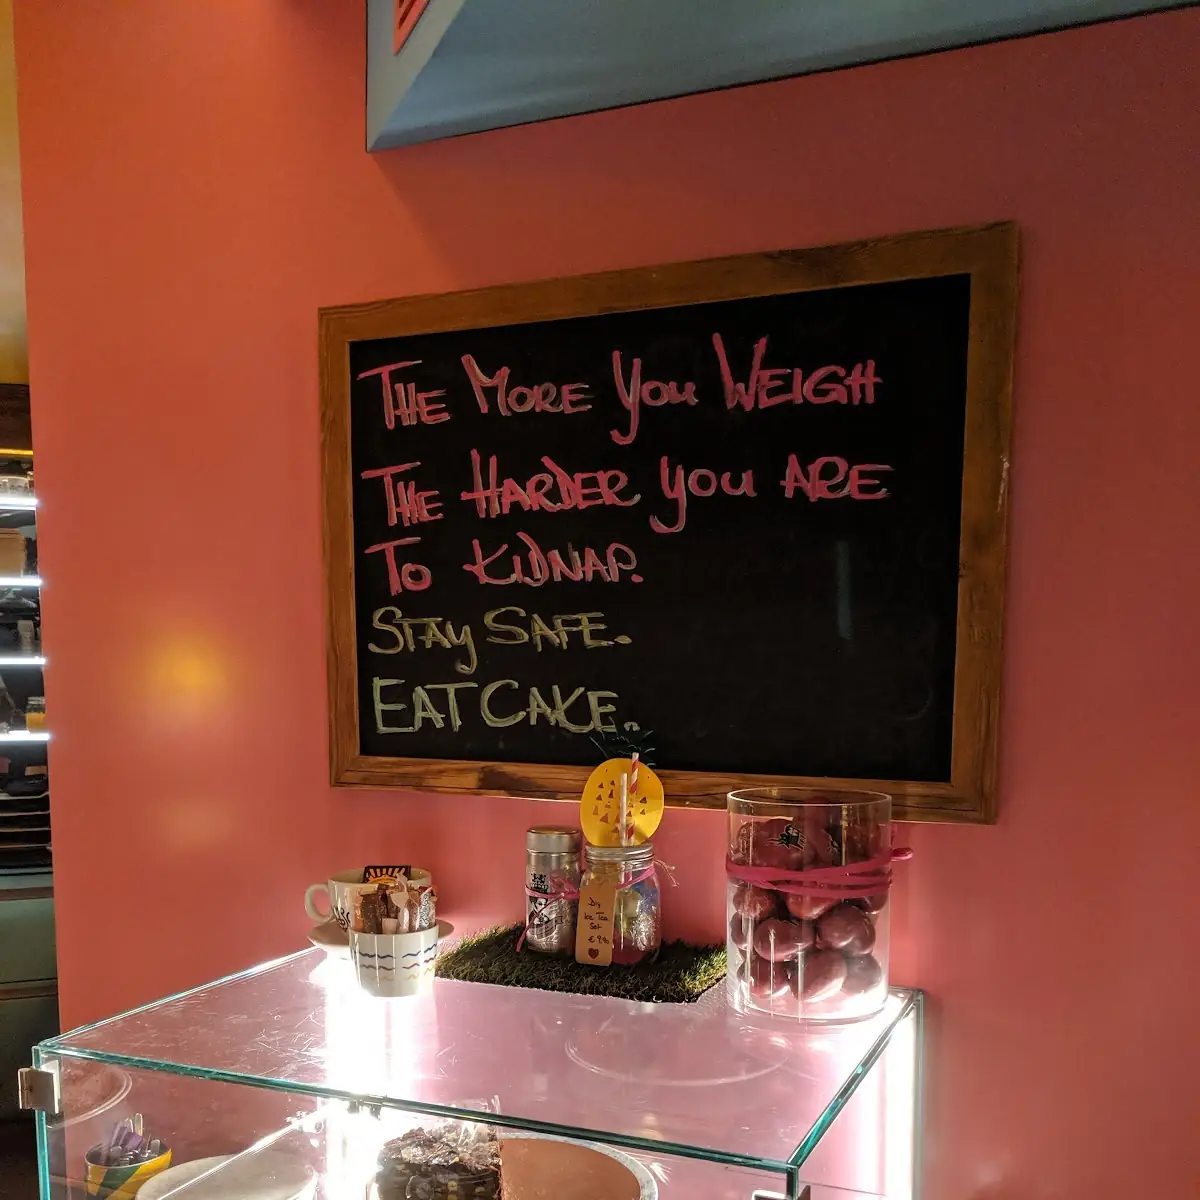 THE MORE YOU WEIGH
THE HARDER YOU ARE
TO KIDNAP.
STAY SAFE.
EAT CAKE.
Diy
Ice Tea
Set